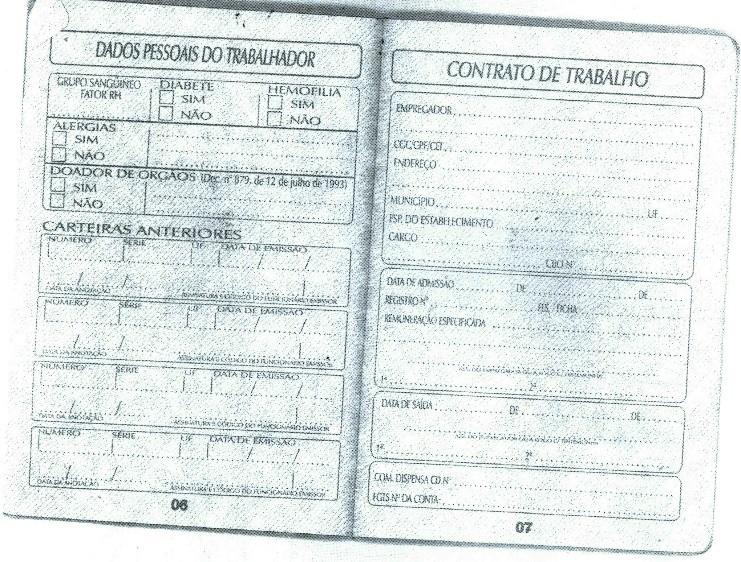 DADOS PESSOAIS DO TRABALHADOR
GRUPO SANGÜINEO
FATOR RH
DIABETE
SIM
NÃO
HEMOFILIA
SIM
NÃO
ALERGIAS
SIM
NÃO
DOADOR DE ORGÃOS (Dec. nº 879, de 12 de julho de 1993)
SIM
NÃO
CARTEIRAS ANTERIORES
NUMERO SÉRIE UF DATA DE EMISSÃO
DATA DA ANOTAÇÃO ASSINATURA E CÓDIGO DO FUNCIONÁRIO EMISSOR
NUMERO SÉRIE UF DATA DE EMISSÃO
DATA DA ANOTAÇÃO ASSINATURA E CÓDIGO DO FUNCIONÁRIO EMISSOR
NUMERO SÉRIE UF DATA DE EMISSÃO
DATA DA ANOTAÇÃO ASSINATURA E CÓDIGO DO FUNCIONÁRIO EMISSOR
NUMERO SÉRIE UF DATA DE EMISSÃO
DATA DA ANOTAÇÃO ASSINATURA E CÓDIGO DO FUNCIONÁRIO EMISSOR
06
CONTRATO DE TRABALHO
EMPREGADOR
CGC/CPF/CEI
ENDEREÇO
MUNICÍPIO UF
ESP. DO ESTABELECIMENTO
CARGO
CBO Nº
DATA DE ADMISSÃO DE DE
REGISTRO Nº FLS. FICHA
REMUNERAÇÃO ESPECIFICADA
1ª 2ª
DATA DE SAÍDA DE DE
1ª 2ª
COM. DISPENSA CD Nº
FGTS Nº DA CONTA
07